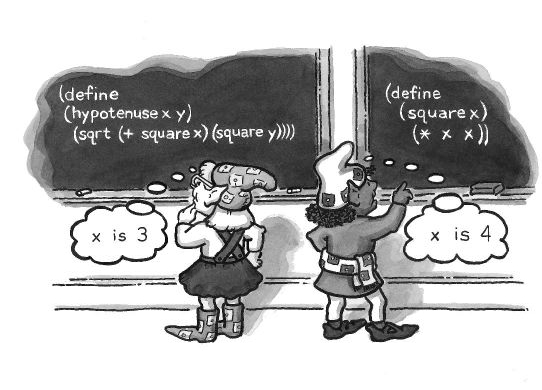 (define
(hypotenuse x y)
(sqrt (+ square x) (square y))))
(define
(square x)
(* x x))
x is 3
x is 4